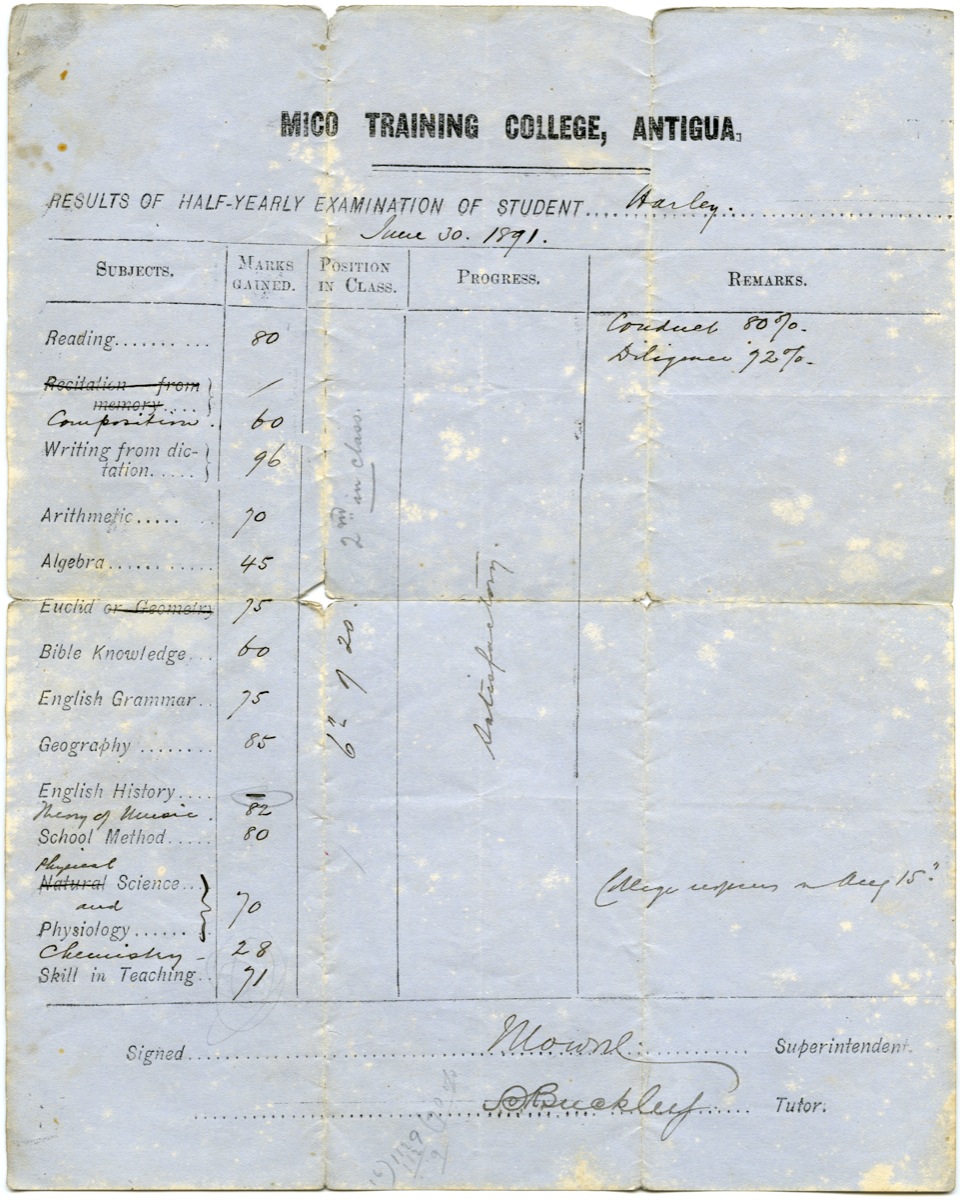 MICO TRAINING COLLEGE, ANTIGUA.
RESULTS OF HALF-YEARLY EXAMINATION OF STUDENT.... Harley.
June 30. 1891.
SUBJECTS. MARKS GAINED. POSITION IN CLASS. PROGRESS. REMARKS.
Conduct 80%.
Reading.......... 80
Diligence 92%.
Recitation from
memory....
Composition. 60
Writing from dic-
tation..... 96
2nd in class.
Arithmetic..... 70
Algebra........... 45
Euclid or Geometry 75
Satisfactory.
Bible Knowledge... 60
6" 9 20.
English Grammar.. 75
Geography ........ 85
English History.... –
Theory of Music. 82
School Method..... 80
Physical
Natural Science...
and 70
Physiology......
College reopens on Aug 15"
Chemistry – 28
Skill in Teaching.. 71
Signed.......... Superintendent.
Buckley Tutor.
1129